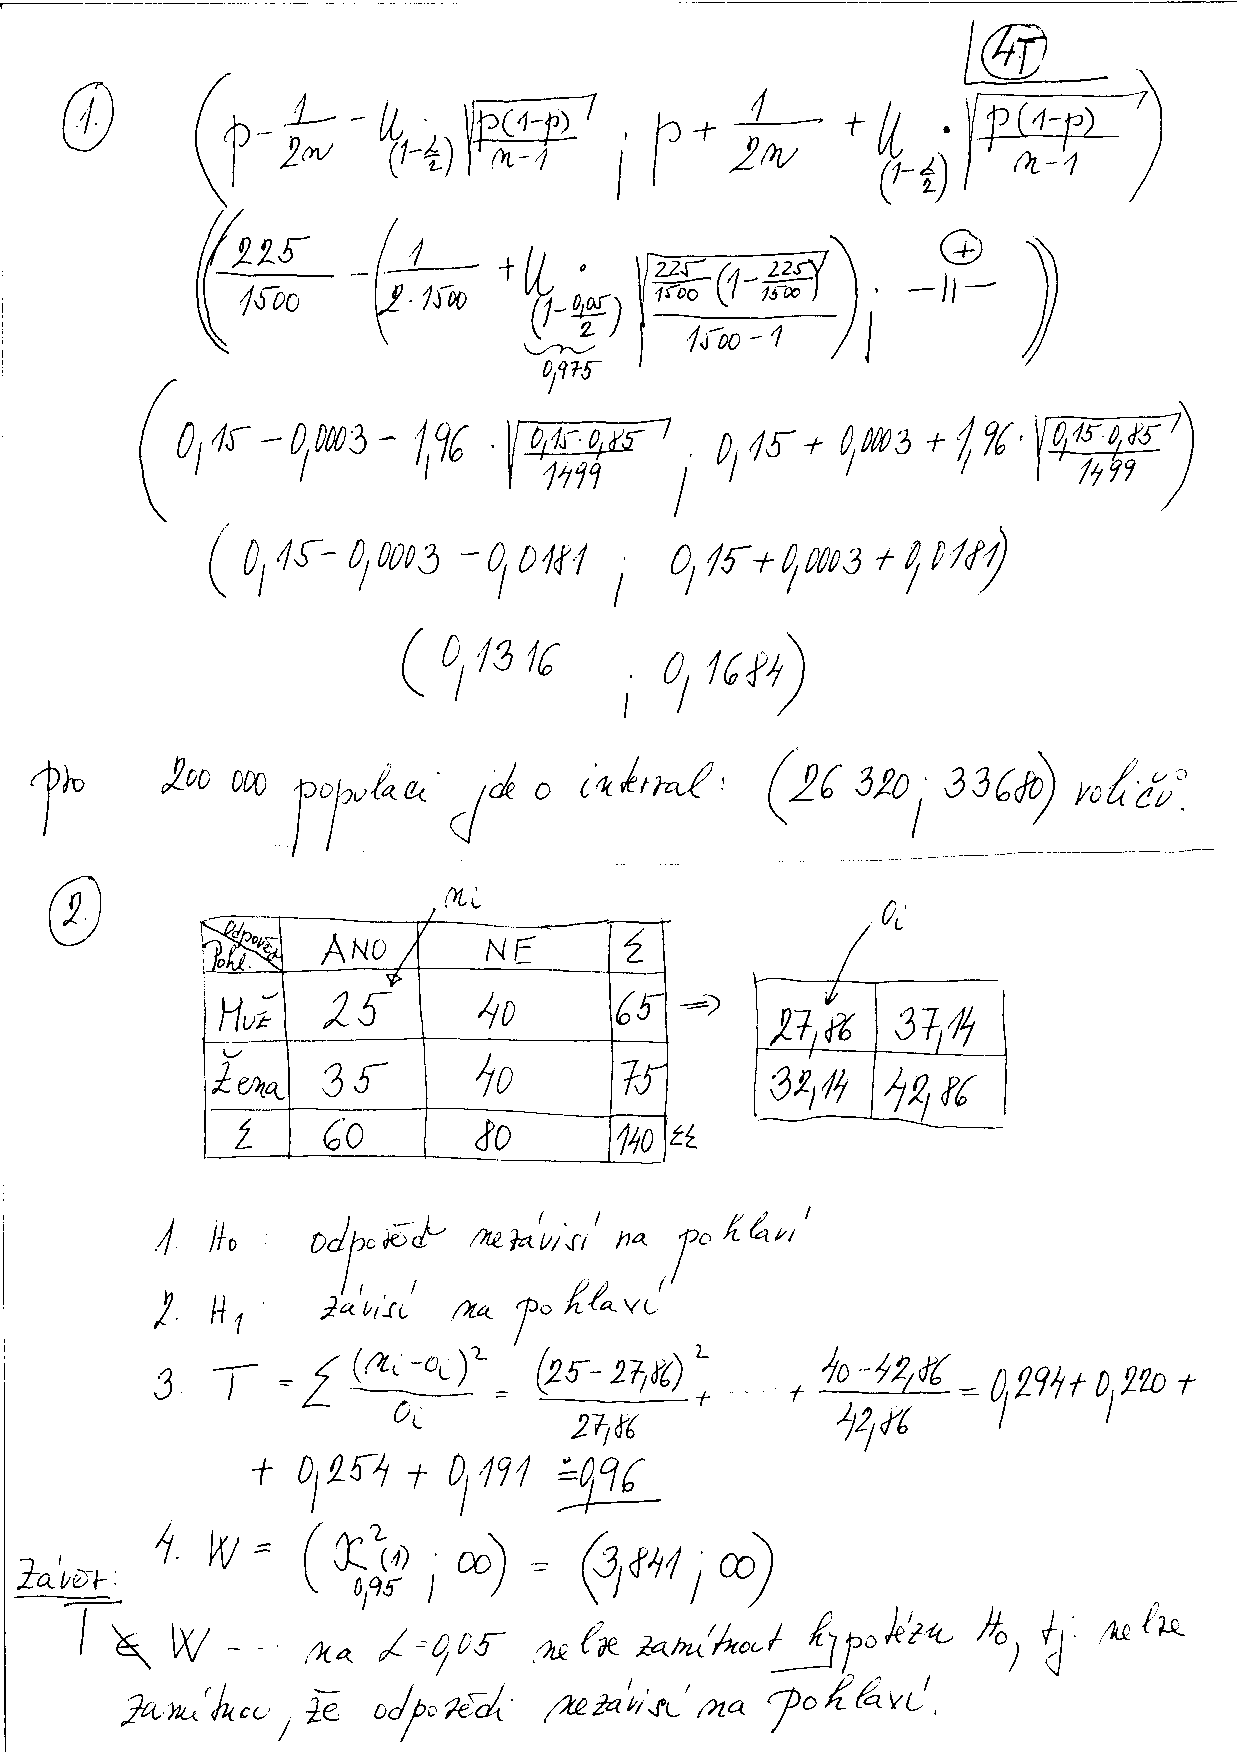 4T
1. (p - 1/2n - u(1-α/2) √(p(1-p)/(n-1)) ; p + 1/2n + u(1-α/2) · √(p(1-p)/(n-1)))
((225/1500 - (1/(2·1500) + u(1-0,05/2) · √(225/1500 (1-225/1500)/(1500-1))) ; -||- ⊕))
0,975
(0,15 - 0,0003 - 1,96 · √(0,15·0,85/1499) ; 0,15 + 0,0003 + 1,96 · √(0,15·0,85/1499))
(0,15 - 0,0003 - 0,0181 ; 0,15 + 0,0003 + 0,0181)
(0,1316 ; 0,1684)
pro 200 000 populaci jde o interval: (26 320 ; 33680) voličů.
2.
ni
oi
Odpověď Pohl. ANO NE Σ
Muž 25 40 65 => 27,86 37,14
Žena 35 40 75 32,14 42,86
Σ 60 80 140 ΣΣ
1. H0: odpověď nezávisí na pohlaví
2. H1: závisí na pohlaví
3. T = Σ (ni-oi)²/oi = (25-27,86)²/27,86 + ···· + 40-42,86/42,86 = 0,294 + 0,220 +
+ 0,254 + 0,191 ≐ 0,96
4. W = (χ²0,95(1) ; ∞) = (3,841 ; ∞)
Závěr:
T ∉ W --- na α=0,05 nelze zamítnout hypotézu H0, tj. nelze
zamítnou, že odpovědi nezávisí na pohlaví.